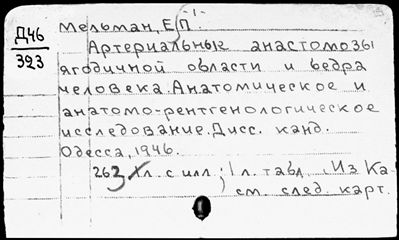 Д46
323
Мельман, Е.П.
Артериальные анастомозы
ягодичной области и бедра
человека. Анатомическое и
анатомо-рентгенологическое
исследование. Дисс. канд.
Одесса, 1946.
263 л. с илл.; 1 л. табл. Из Ка-
см. след. карт.